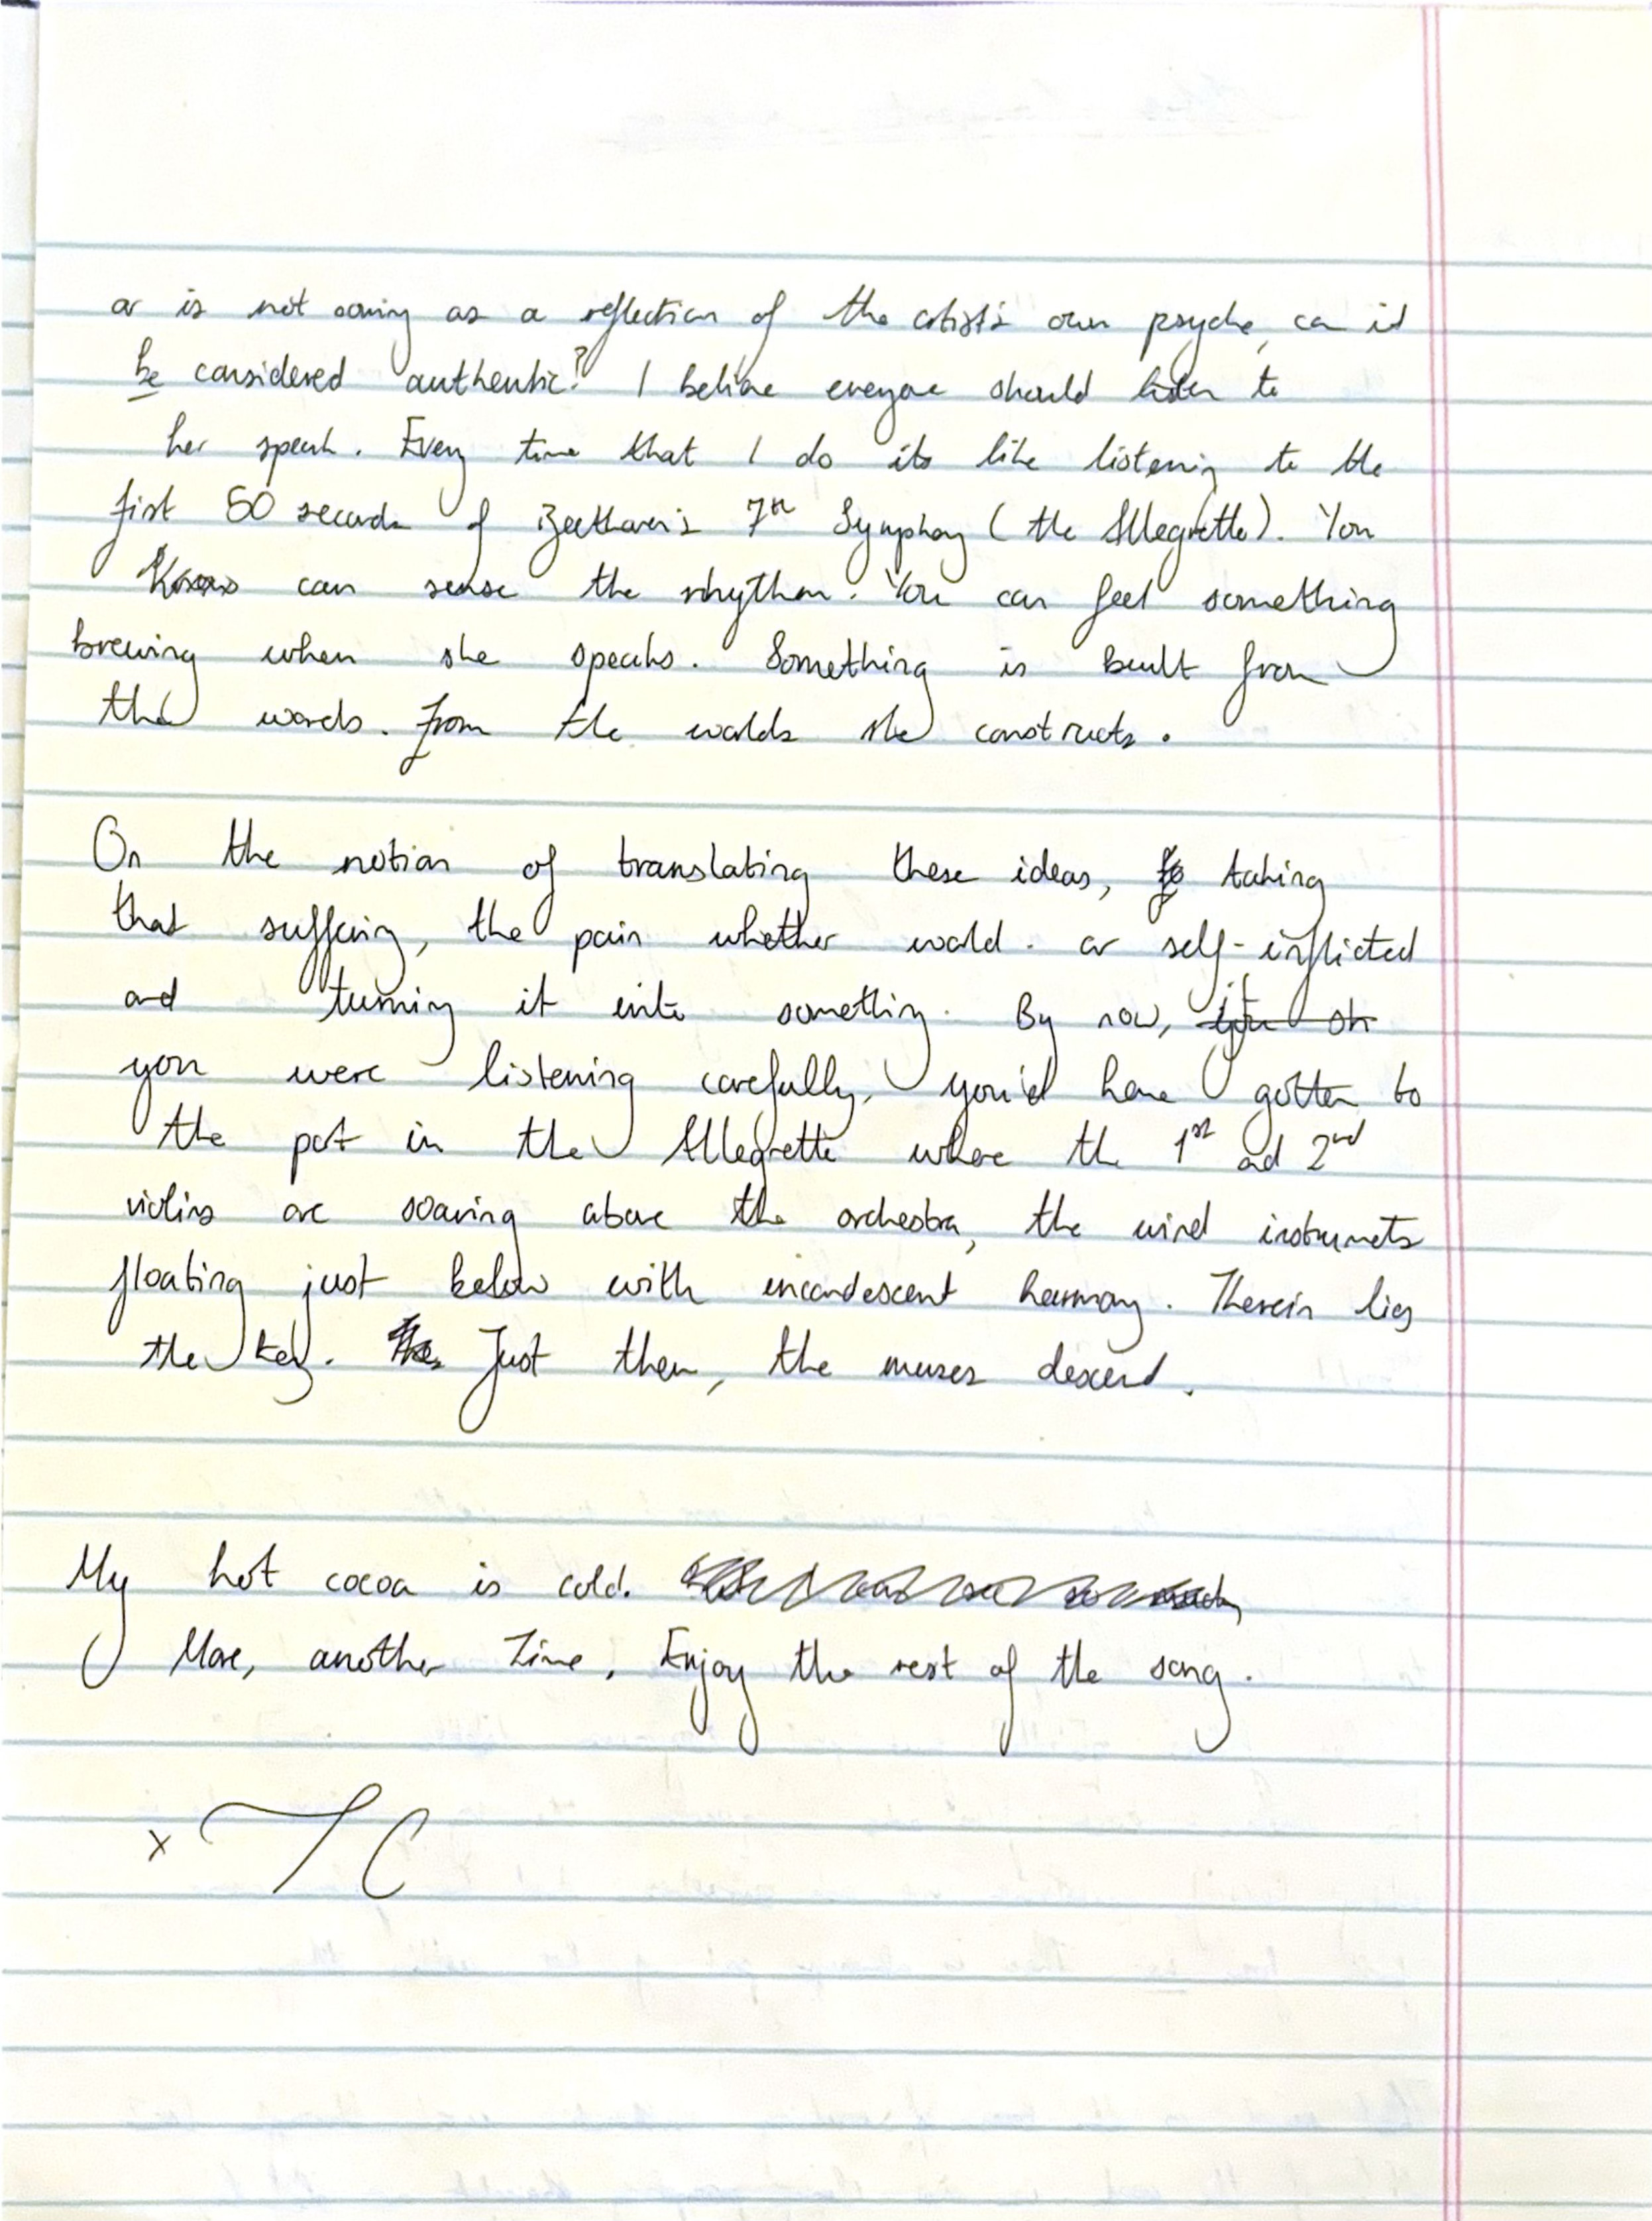 or is not coming as a reflection of the artist's own psyche, can it
be considered authentic? I believe everyone should listen to
her speak. Every time that I do its like listening to the
first 50 seconds of Beethoven's 7th Symphony (the Allegretto). You
can sense the rhythm. You can feel something
brewing when she speaks. Something is built from
the words. From the worlds she constructs.
On the notion of translating these ideas, to taking
that suffering, the pain whether world- or self-inflicted
and turning it into something. By now, if
you were listening carefully, you'd have gotten to
the part in the Allegretto where the 1st and 2nd
violins are soaring above the orchestra, the wind instruments
floating just below with incandescent harmony. Therein lies
the key. Just then, the muses descend.
My hot cocoa is cold.
More, another time. Enjoy the rest of the song.
x TC